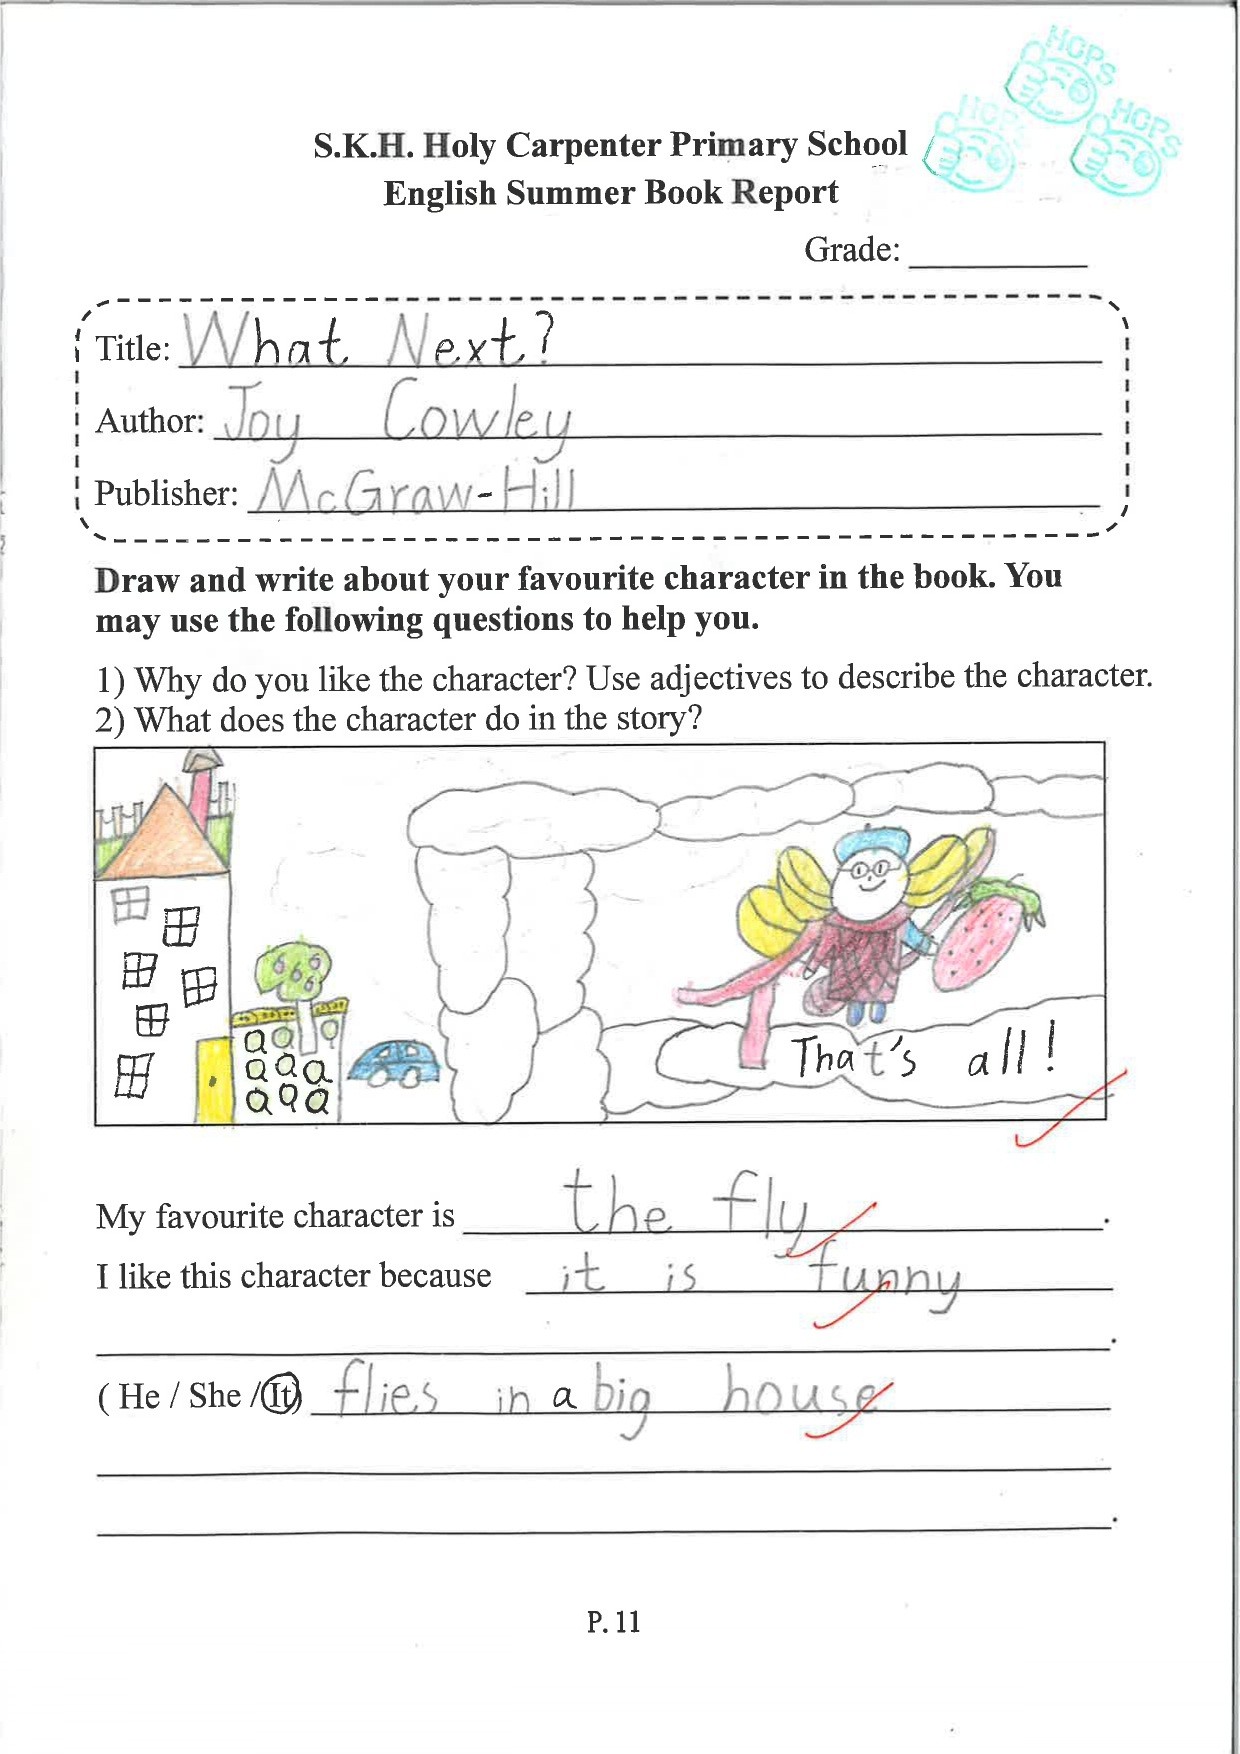 HOPS
HOPS
HOPS
S.K.H. Holy Carpenter Primary School
English Summer Book Report
Grade:
Title: What Next?
Author: Joy Cowley
Publisher: McGraw-Hill
Draw and write about your favourite character in the book. You
may use the following questions to help you.
1) Why do you like the character? Use adjectives to describe the character.
2) What does the character do in the story?
That's all!
My favourite character is the fly.
I like this character because it is funny
.
( He / She / It) flies in a big house
.
P. 11